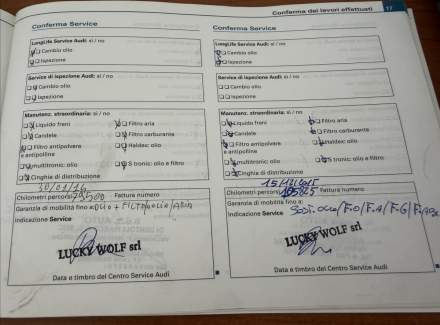 Conferma dei lavori effettuati 17
Conferma Service
LongLife Service Audi: sì / no
Cambio olio
Ispezione
Service di ispezione Audi: sì / no
Cambio olio
Ispezione
Manutenz. straordinaria: sì / no
Liquido freni
Filtro aria
Candele
Filtro carburante
Filtro antipolvere e antipolline
Haldex: olio
multitronic: olio
S tronic: olio e filtro
Cinghia di distribuzione
Chilometri percorsi
Fattura numero
Garanzia di mobilità fino a
OLIO + FILTRO OLIO
Indicazione Service
LUCKY WOLF srl
Data e timbro del Centro Service Audi
Conferma Service
LongLife Service Audi: sì / no
Cambio olio
Ispezione
Service di ispezione Audi: sì / no
Cambio olio
Ispezione
Manutenz. straordinaria: sì / no
Liquido freni
Filtro aria
Candele
Filtro carburante
Filtro antipolvere e antipolline
Haldex: olio
multitronic: olio
S tronic: olio e filtro
Cinghia di distribuzione
Chilometri percorsi
Fattura numero
Garanzia di mobilità fino a:
Indicazione Service
LUCKY WOLF srl
Data e timbro del Centro Service Audi